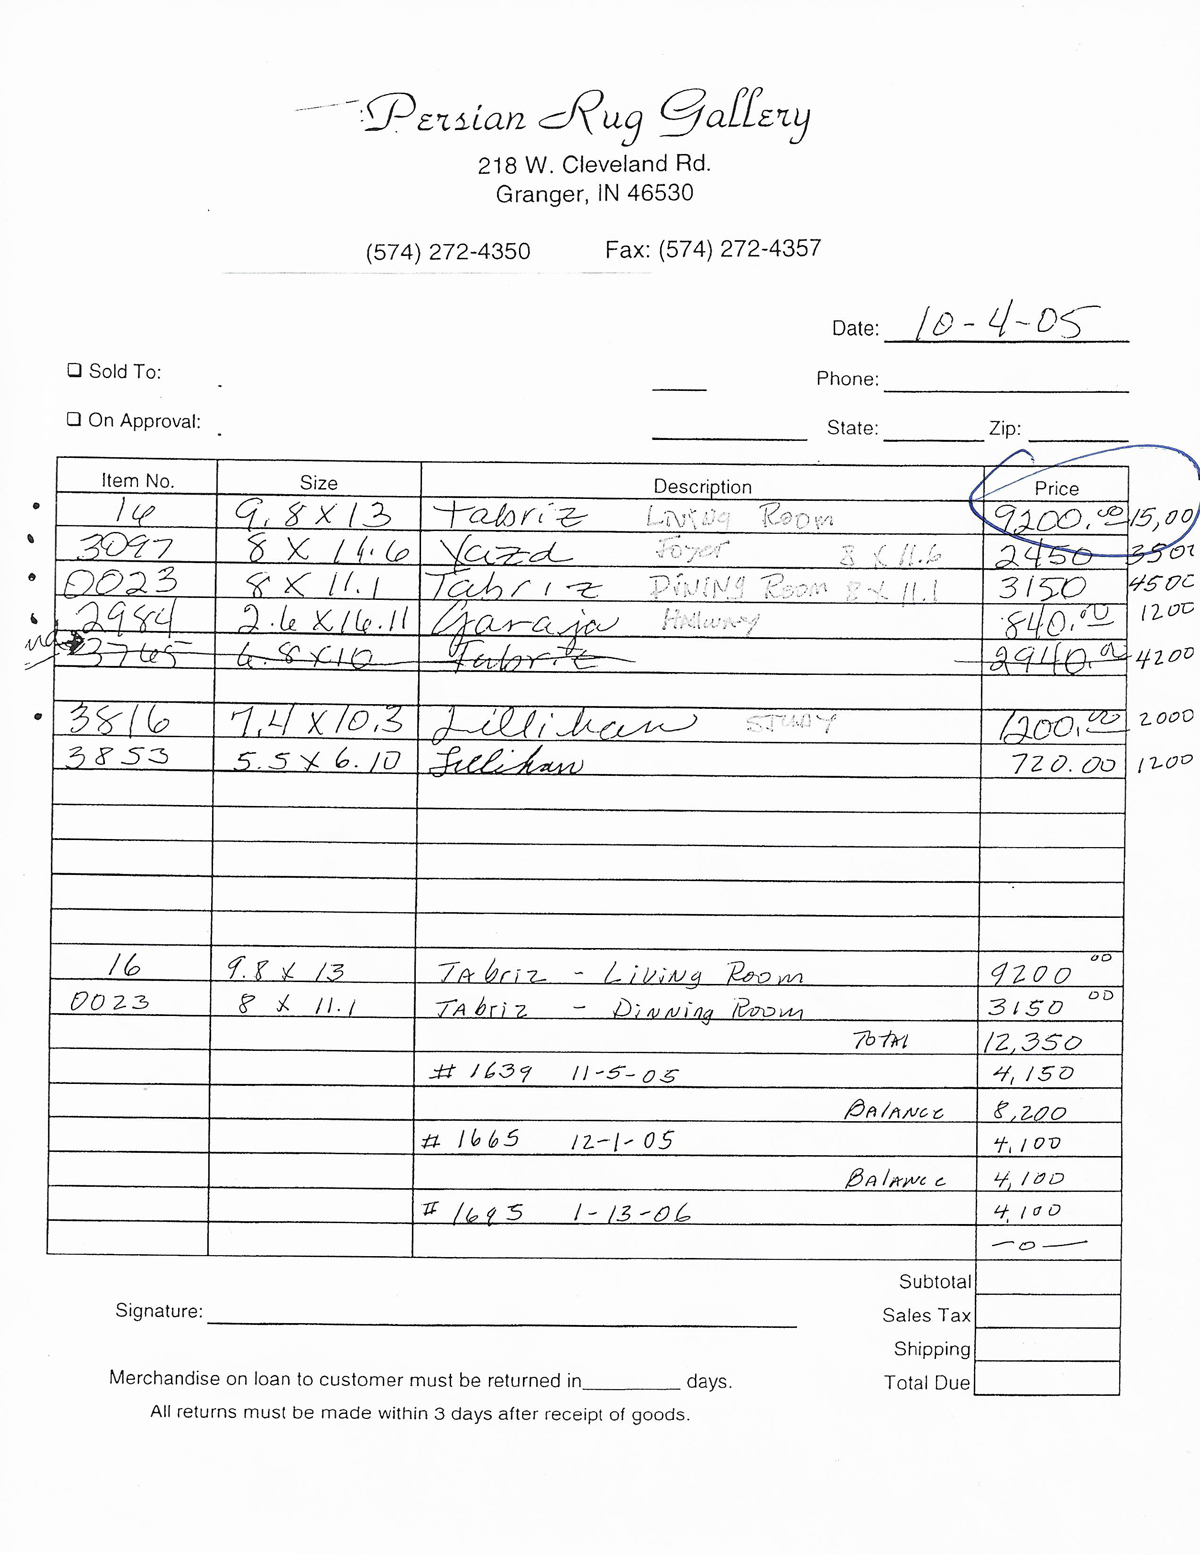 Persian Rug Gallery
218 W. Cleveland Rd.
Granger, IN 46530
(574) 272-4350 Fax: (574) 272-4357
Date: 10-4-05
❑ Sold To: Phone:
❑ On Approval: State: Zip:
Item No. Size Description Price
16 9.8 X 13 Tabriz Living Room 9200.00 15,00
3097 8 X 11.6 Yazd Foyer 8 X 11.6 2450 350
0023 8 X 11.1 Tabriz Dining Room 8 X 11.1 3150 450
2984 2.6 X 16.11 Garaja Hallway 840.00 1200
3765 6.8 X 10 Tabriz 2940.00 4200
3816 7.4 X 10.3 Lillihan STUDY 1200.00 2000
3853 5.5 X 6.10 Lillihan 720.00 1200
16 9.8 X 13 TAbriz - Living Room 9200 00
0023 8 X 11.1 TAbriz - Dinning Room 3150 00
Total 12,350
# 1639 11-5-05 4,150
Balance 8,200
# 1665 12-1-05 4,100
Balance 4,100
# 1695 1-13-06 4,100
—0—
Subtotal
Signature: Sales Tax
Shipping
Merchandise on loan to customer must be returned in________ days. Total Due
All returns must be made within 3 days after receipt of goods.